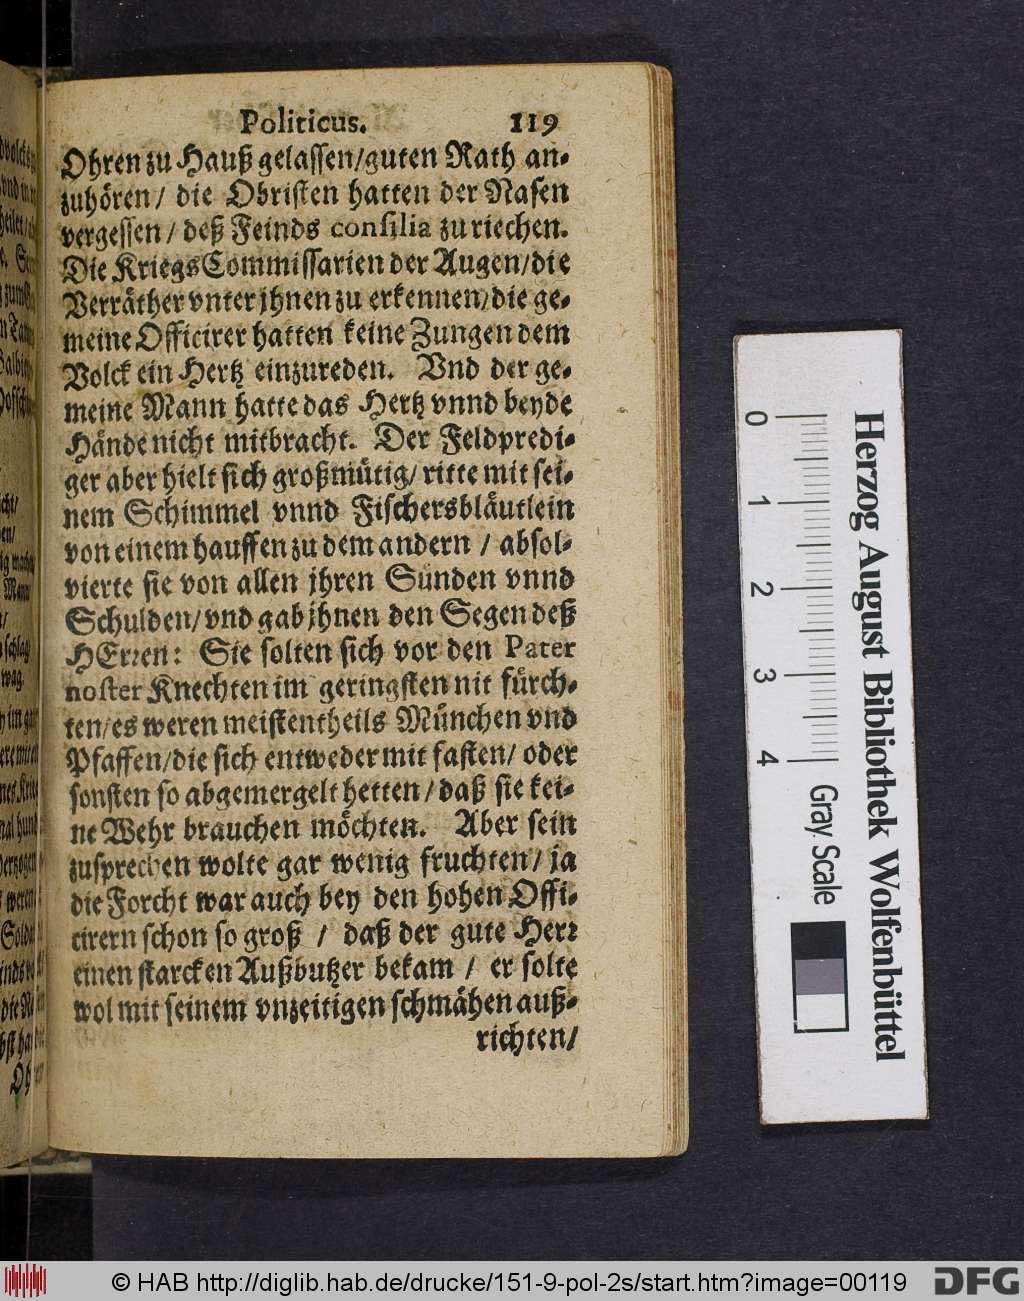 Politicus. 119
Ohren zu Hauß gelassen/guten Rath an-
zuhören/ die Obristen hatten der Nasen
vergessen/ deß Feinds consilia zu riechen.
Die KriegsCommissarien der Augen/die
Verräther vnter jhnen zu erkennen/die ge-
meine Officirer hatten keine Zungen dem
Volck ein Hertz einzureden. Vnd der ge-
meine Mann hatte das Hertz vnnd beyde
Hände nicht mitbracht. Der Feldpredi-
ger aber hielt sich großmütig/ ritte mit sei-
nem Schimmel vnnd Fischersbläutlein
von einem hauffen zu dem andern / absol-
vierte sie von allen jhren Sünden vnnd
Schulden/ vnd gab jhnen den Segen deß
HErren: Sie solten sich vor den Pater
noster Knechten im geringsten nit fürch-
ten/es weren meistentheils München vnd
Pfaffen/die sich entweder mit fasten/ oder
sonsten so abgemergelt hetten/ daß sie kei-
ne Wehr brauchen möchten. Aber sein
zusprechen wolte gar wenig fruchten/ ja
die Forcht war auch bey den hohen Offi-
cirern schon so groß / daß der gute Herr
einen starcken Außbutzer bekam / er solte
wol mit seinem vnzeitigen schmähen auß-
richten/
Herzog August Bibliothek Wolfenbüttel
0 1 2 3 4 Gray Scale
© HAB http://diglib.hab.de/drucke/151-9-pol-2s/start.htm?image=00119
DFG